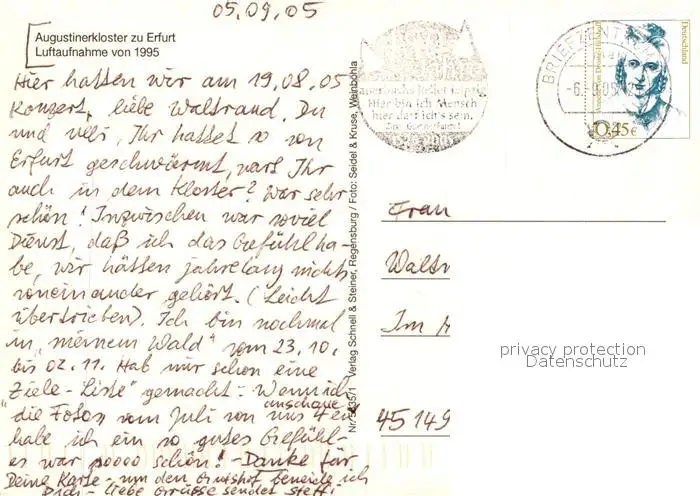 05.09.05
Augustinerkloster zu Erfurt
Luftaufnahme von 1995
Hier hatten wir am 19.08.05
Konzert, liebe Waltraud. Du
und Ulli, Ihr hattet so von
Erfurt geschwärmt, wart Ihr
auch in dem Kloster? War sehr
schön! Inzwischen war soviel
Dienst, daß ich das Gefühl ha-
be, wir hätten jahrelang nichts
voneinander gehört. (Leicht
übertrieben). Ich bin nochmal
in "meinem Wald" vom 23.10.
bis 02.11. Hab mir schon eine
"Ziele-Liste" gemacht. Wenn ich
die Fotos vom Juli von uns anschaue
habe ich ein so gutes Gefühl-
es war soooo schön! - Danke für
Deine Karte - um den beneide ich
Dich - liebe Grüsse sendet Steffi
Verlag Schnell & Steiner, Regensburg / Foto: Seidel & Kruse, Weinböhla
Auerbachs Keller Leipzig
Hier bin ich Mensch
hier darf ich's sein.
BRIEFZENTRUM
-6.-9.05
Deutschland
0,45€
Frau
Walt
Im
45149
privacy protection
Datenschutz